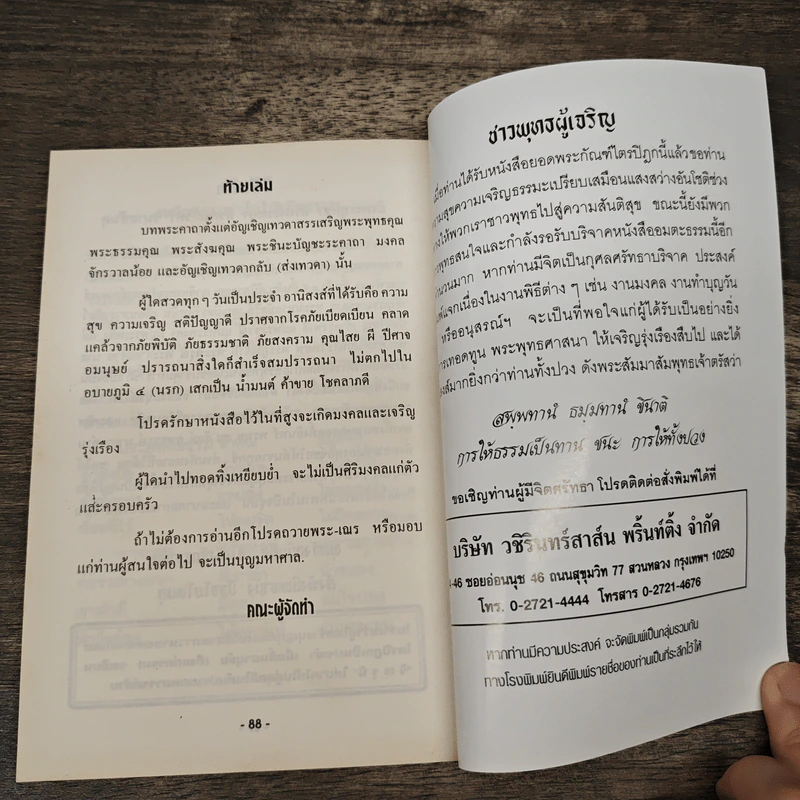 ท้ายเล่ม
บทพระคาถาตั้งแต่อัญเชิญเทวดาสรรเสริญพระพุทธคุณ
พระธรรมคุณ พระสังฆคุณ พระชินะบัญชะระคาถา มงคล
จักรวาลน้อย และอัญเชิญเทวดากลับ (ส่งเทวดา) นั้น
ผู้ใดสวดทุก ๆ วันเป็นประจำ อานิสงส์ที่ได้รับคือ ความ
สุข ความเจริญ สติปัญญาดี ปราศจากโรคภัยเบียดเบียน คลาด
แคล้วจากภัยพิบัติ ภัยธรรมชาติ ภัยสงคราม คุณไสย ผี ปีศาจ
อมนุษย์ ปรารถนาสิ่งใดก็สำเร็จสมปรารถนา ไม่ตกไปใน
อบายภูมิ ๔ (นรก) เสกเป็น น้ำมนต์ ค้าขาย โชคลาภดี
โปรดรักษาหนังสือไว้ในที่สูงจะเกิดมงคลและเจริญ
รุ่งเรือง
ผู้ใดนำไปทอดทิ้งเหยียบย่ำ จะไม่เป็นศิริมงคลแก่ตัว
และครอบครัว
ถ้าไม่ต้องการอ่านอีกโปรดถวายพระ-เณร หรือมอบ
แก่ท่านผู้สนใจต่อไป จะเป็นบุญมหาศาล.
คณะผู้จัดทำ
- 88 -
ชาวพุทธผู้เจริญ
เมื่อท่านได้รับหนังสือยอดพระกัณฑ์ไตรปิฎกนี้แล้วขอท่าน
ความสุขความเจริญธรรมะเปรียบเสมือนแสงสว่างอันโชติช่วง
ให้พวกเราชาวพุทธไปสู่ความสันติสุข ขณะนี้ยังมีพวก
พุทธสนใจและกำลังรอรับบริจาคหนังสืออมตะธรรมนี้อีก
จำนวนมาก หากท่านมีจิตเป็นกุศลศรัทธาบริจาค ประสงค์
แจกเนื่องในงานพิธีต่าง ๆ เช่น งานมงคล งานทำบุญวัน
หรืออนุสรณ์ฯ จะเป็นที่พอใจแก่ผู้ได้รับเป็นอย่างยิ่ง
การเทอดทูน พระพุทธศาสนา ให้เจริญรุ่งเรืองสืบไป และได้
มากยิ่งกว่าท่านทั้งปวง ดังพระสัมมาสัมพุทธเจ้าตรัสว่า
สพฺพทานํ ธมฺมทานํ ชินาติ
การให้ธรรมเป็นทาน ชนะ การให้ทั้งปวง
ขอเชิญท่านผู้มีจิตศรัทธา โปรดติดต่อสั่งพิมพ์ได้ที่
บริษัท วชิรินทร์สาส์น พริ้นท์ติ้ง จำกัด
-46 ซอยอ่อนนุช 46 ถนนสุขุมวิท 77 สวนหลวง กรุงเทพฯ 10250
โทร. 0-2721-4444 โทรสาร 0-2721-4676
หากท่านมีความประสงค์ จะจัดพิมพ์เป็นกลุ่มรวมกัน
ทางโรงพิมพ์ยินดีพิมพ์รายชื่อของท่านเป็นที่ระลึกไว้ให้